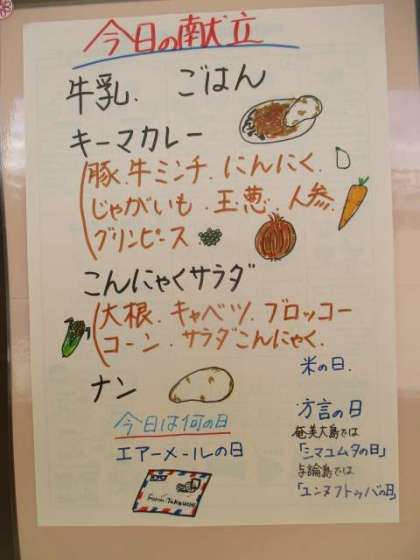 今日の献立
牛乳. ごはん
キーマカレー
豚.牛ミンチ.にんにく.
じゃがいも.玉葱.人参.
グリンピース
こんにゃくサラダ
大根.キャベツ.ブロッコー
コーン.サラダこんにゃく.
ナン
米の日.
今日は何の日
エアーメールの日
方言の日
奄美大島では
「シマユムタの日」
与論島では
「ユンヌフトゥバの日」